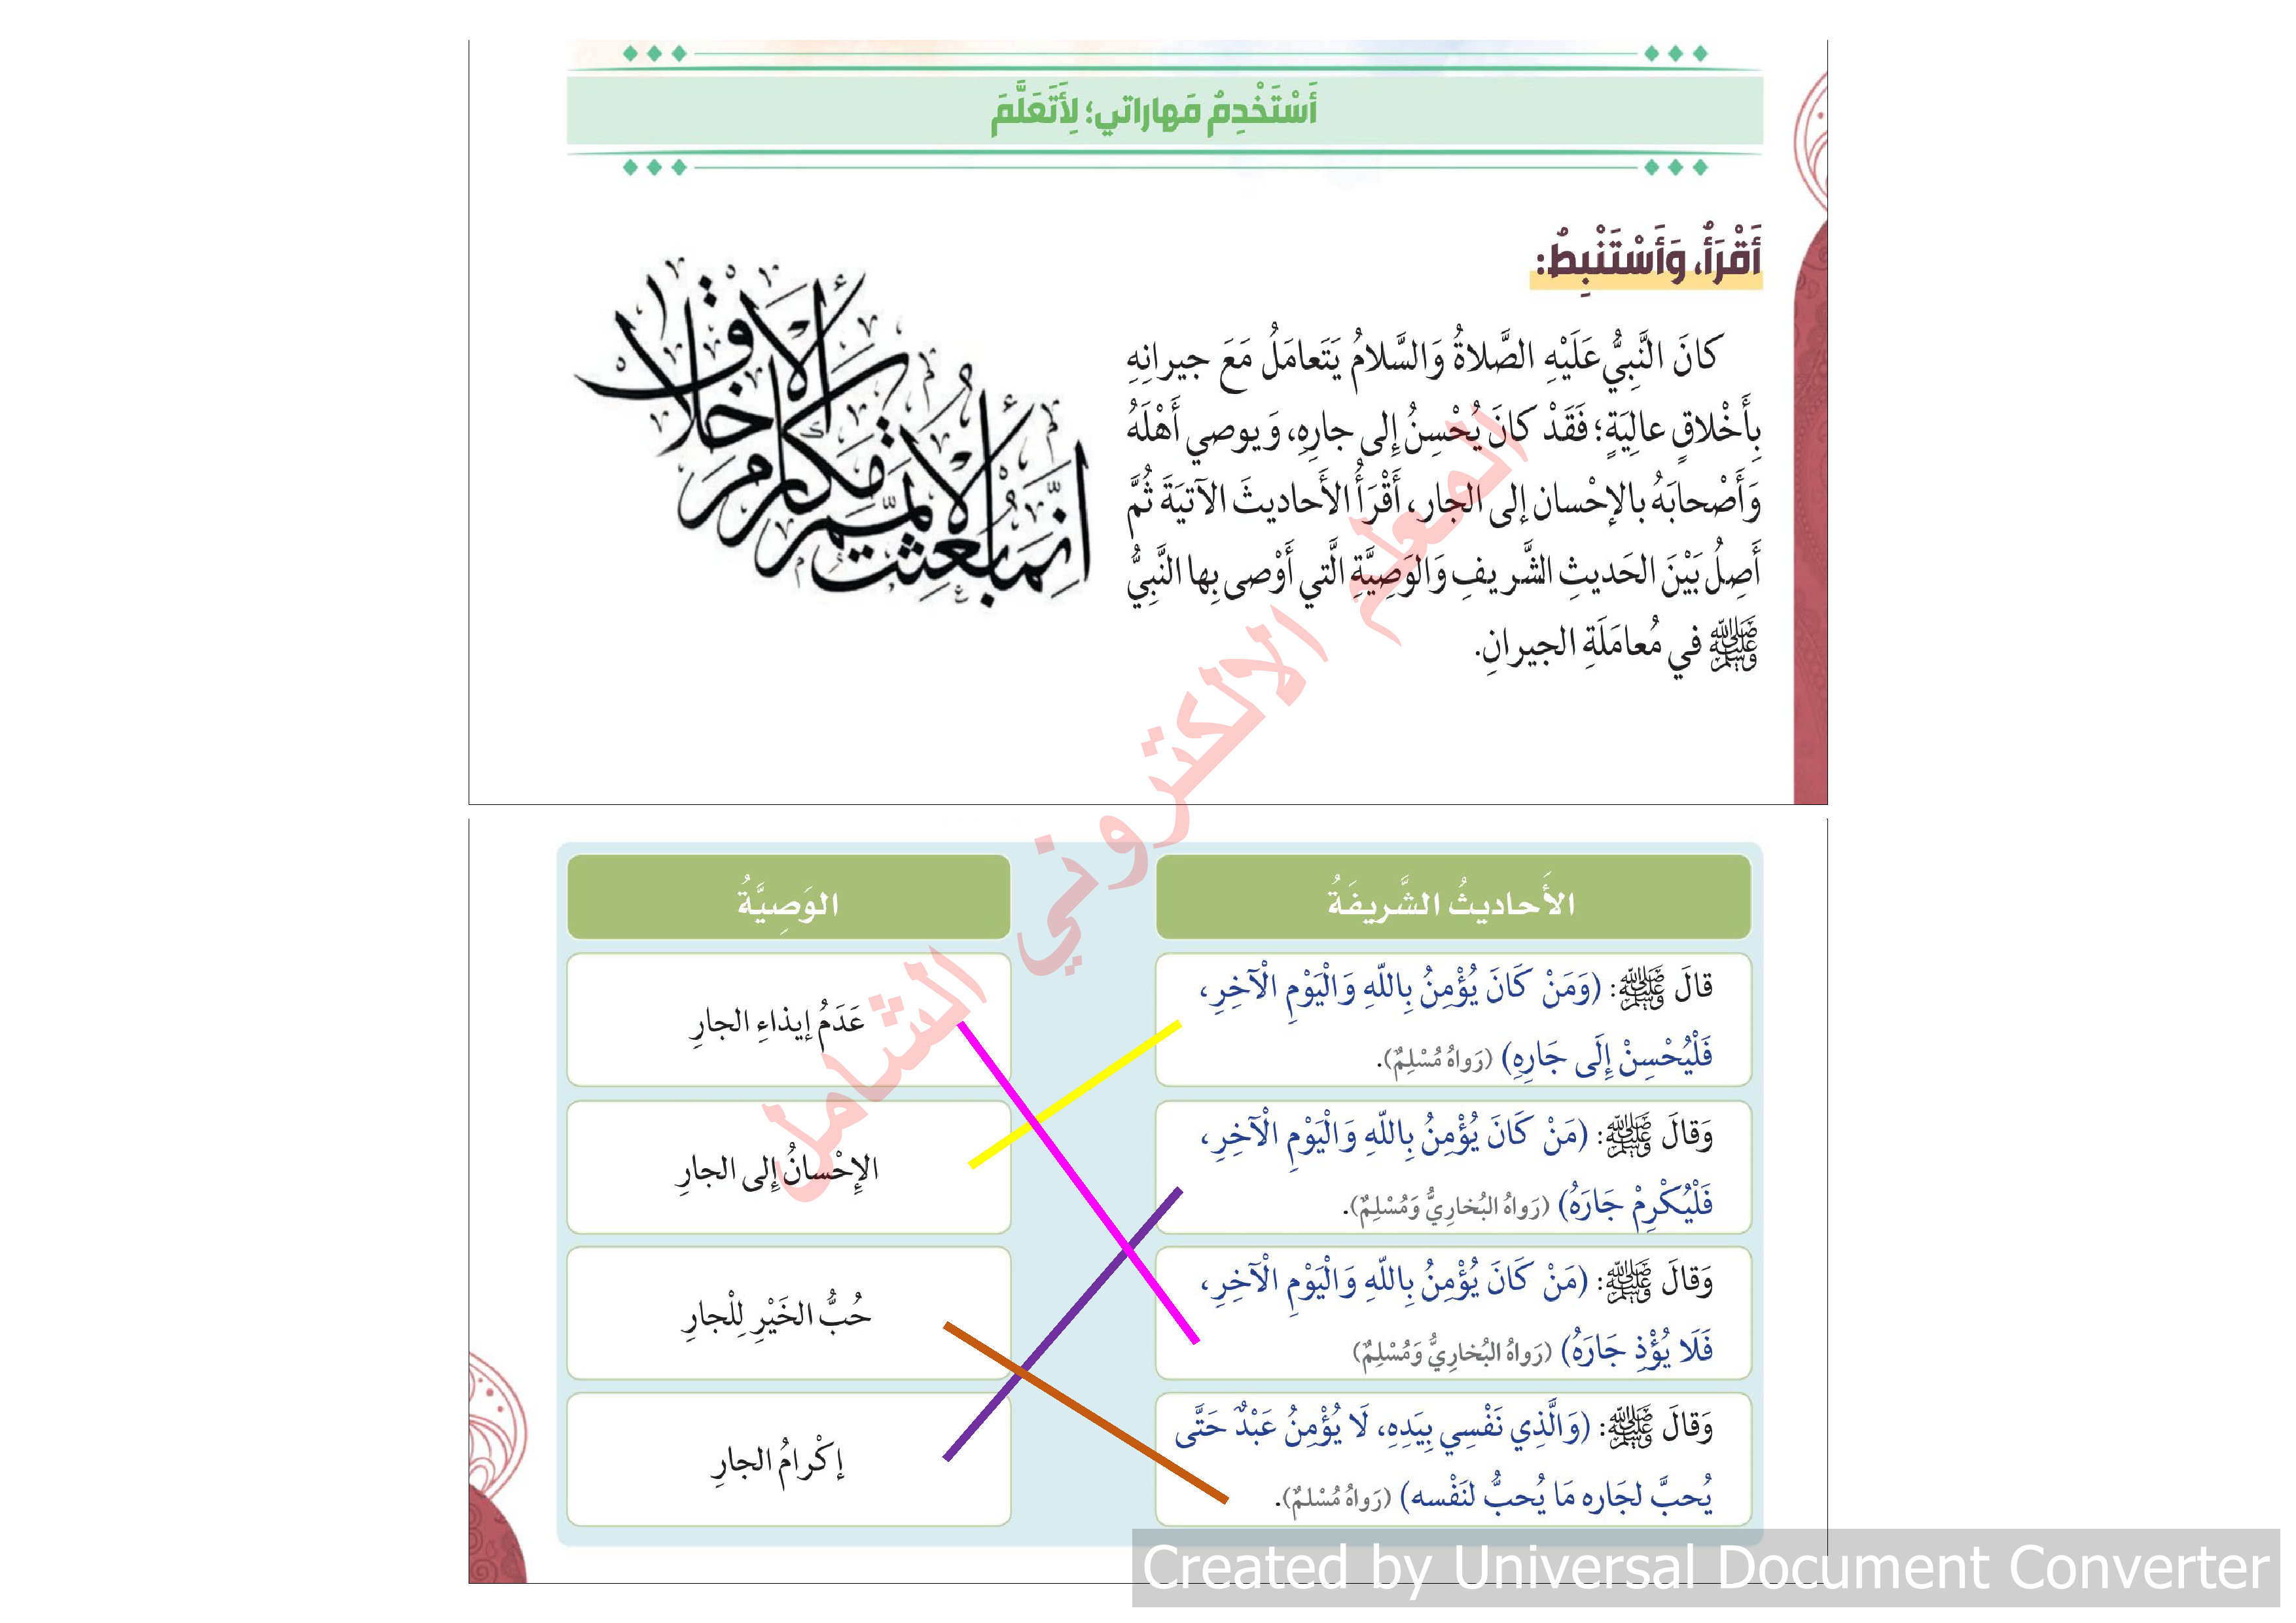 أَسْتَخْدِمُ مَهاراتي؛ لِأَتَعَلَّمَ
أَقْرَأُ، وَأَسْتَنْبِطُ:
كانَ النَّبِيُّ عَلَيْهِ الصَّلاةُ وَالسَّلامُ يَتَعامَلُ مَعَ جيرانِهِ
بِأَخْلاقٍ عالِيَةٍ؛ فَقَدْ كانَ يُحْسِنُ إِلى جارِهِ، وَيوصي أَهْلَهُ
وَأَصْحابَهُ بالإحْسان إلى الجار، أَقْرَأُ الأَحاديثَ الآتيَةَ ثُمَّ
أَصِلُ بَيْنَ الحَديثِ الشَّريفِ وَالوَصِيَّةِ الَّتي أَوْصى بِها النَّبِيُّ
ﷺ في مُعامَلَةِ الجيرانِ.
إنما بعثت لأتمم مكارم الأخلاق
الأَحاديثُ الشَّريفَةُ
الوَصِيَّةُ
قالَ ﷺ: (وَمَنْ كَانَ يُؤْمِنُ بِاللّهِ وَالْيَوْمِ الْآخِرِ،
فَلْيُحْسِنْ إِلَى جَارِهِ) (رَواهُ مُسْلِمٌ).
عَدَمُ إيذاءِ الجارِ
وَقالَ ﷺ: (مَنْ كَانَ يُؤْمِنُ بِاللّهِ وَالْيَوْمِ الْآخِرِ،
فَلْيُكْرِمْ جَارَهُ) (رَواهُ البُخارِيُّ وَمُسْلِمٌ).
الإِحْسانُ إِلى الجارِ
وَقالَ ﷺ: (مَنْ كَانَ يُؤْمِنُ بِاللّهِ وَالْيَوْمِ الْآخِرِ،
فَلَا يُؤْذِ جَارَهُ) (رَواهُ البُخارِيُّ وَمُسْلِمٌ)
حُبُّ الخَيْرِ لِلْجارِ
وَقالَ ﷺ: (وَالَّذِي نَفْسِي بِيَدِهِ، لَا يُؤْمِنُ عَبْدٌ حَتَّى
يُحبَّ لجَاره مَا يُحبُّ لنَفْسه) (رَواهُ مُسْلمٌ).
إكْرامُ الجارِ
المعلم الالكتروني الشامل
Created by Universal Document Converter